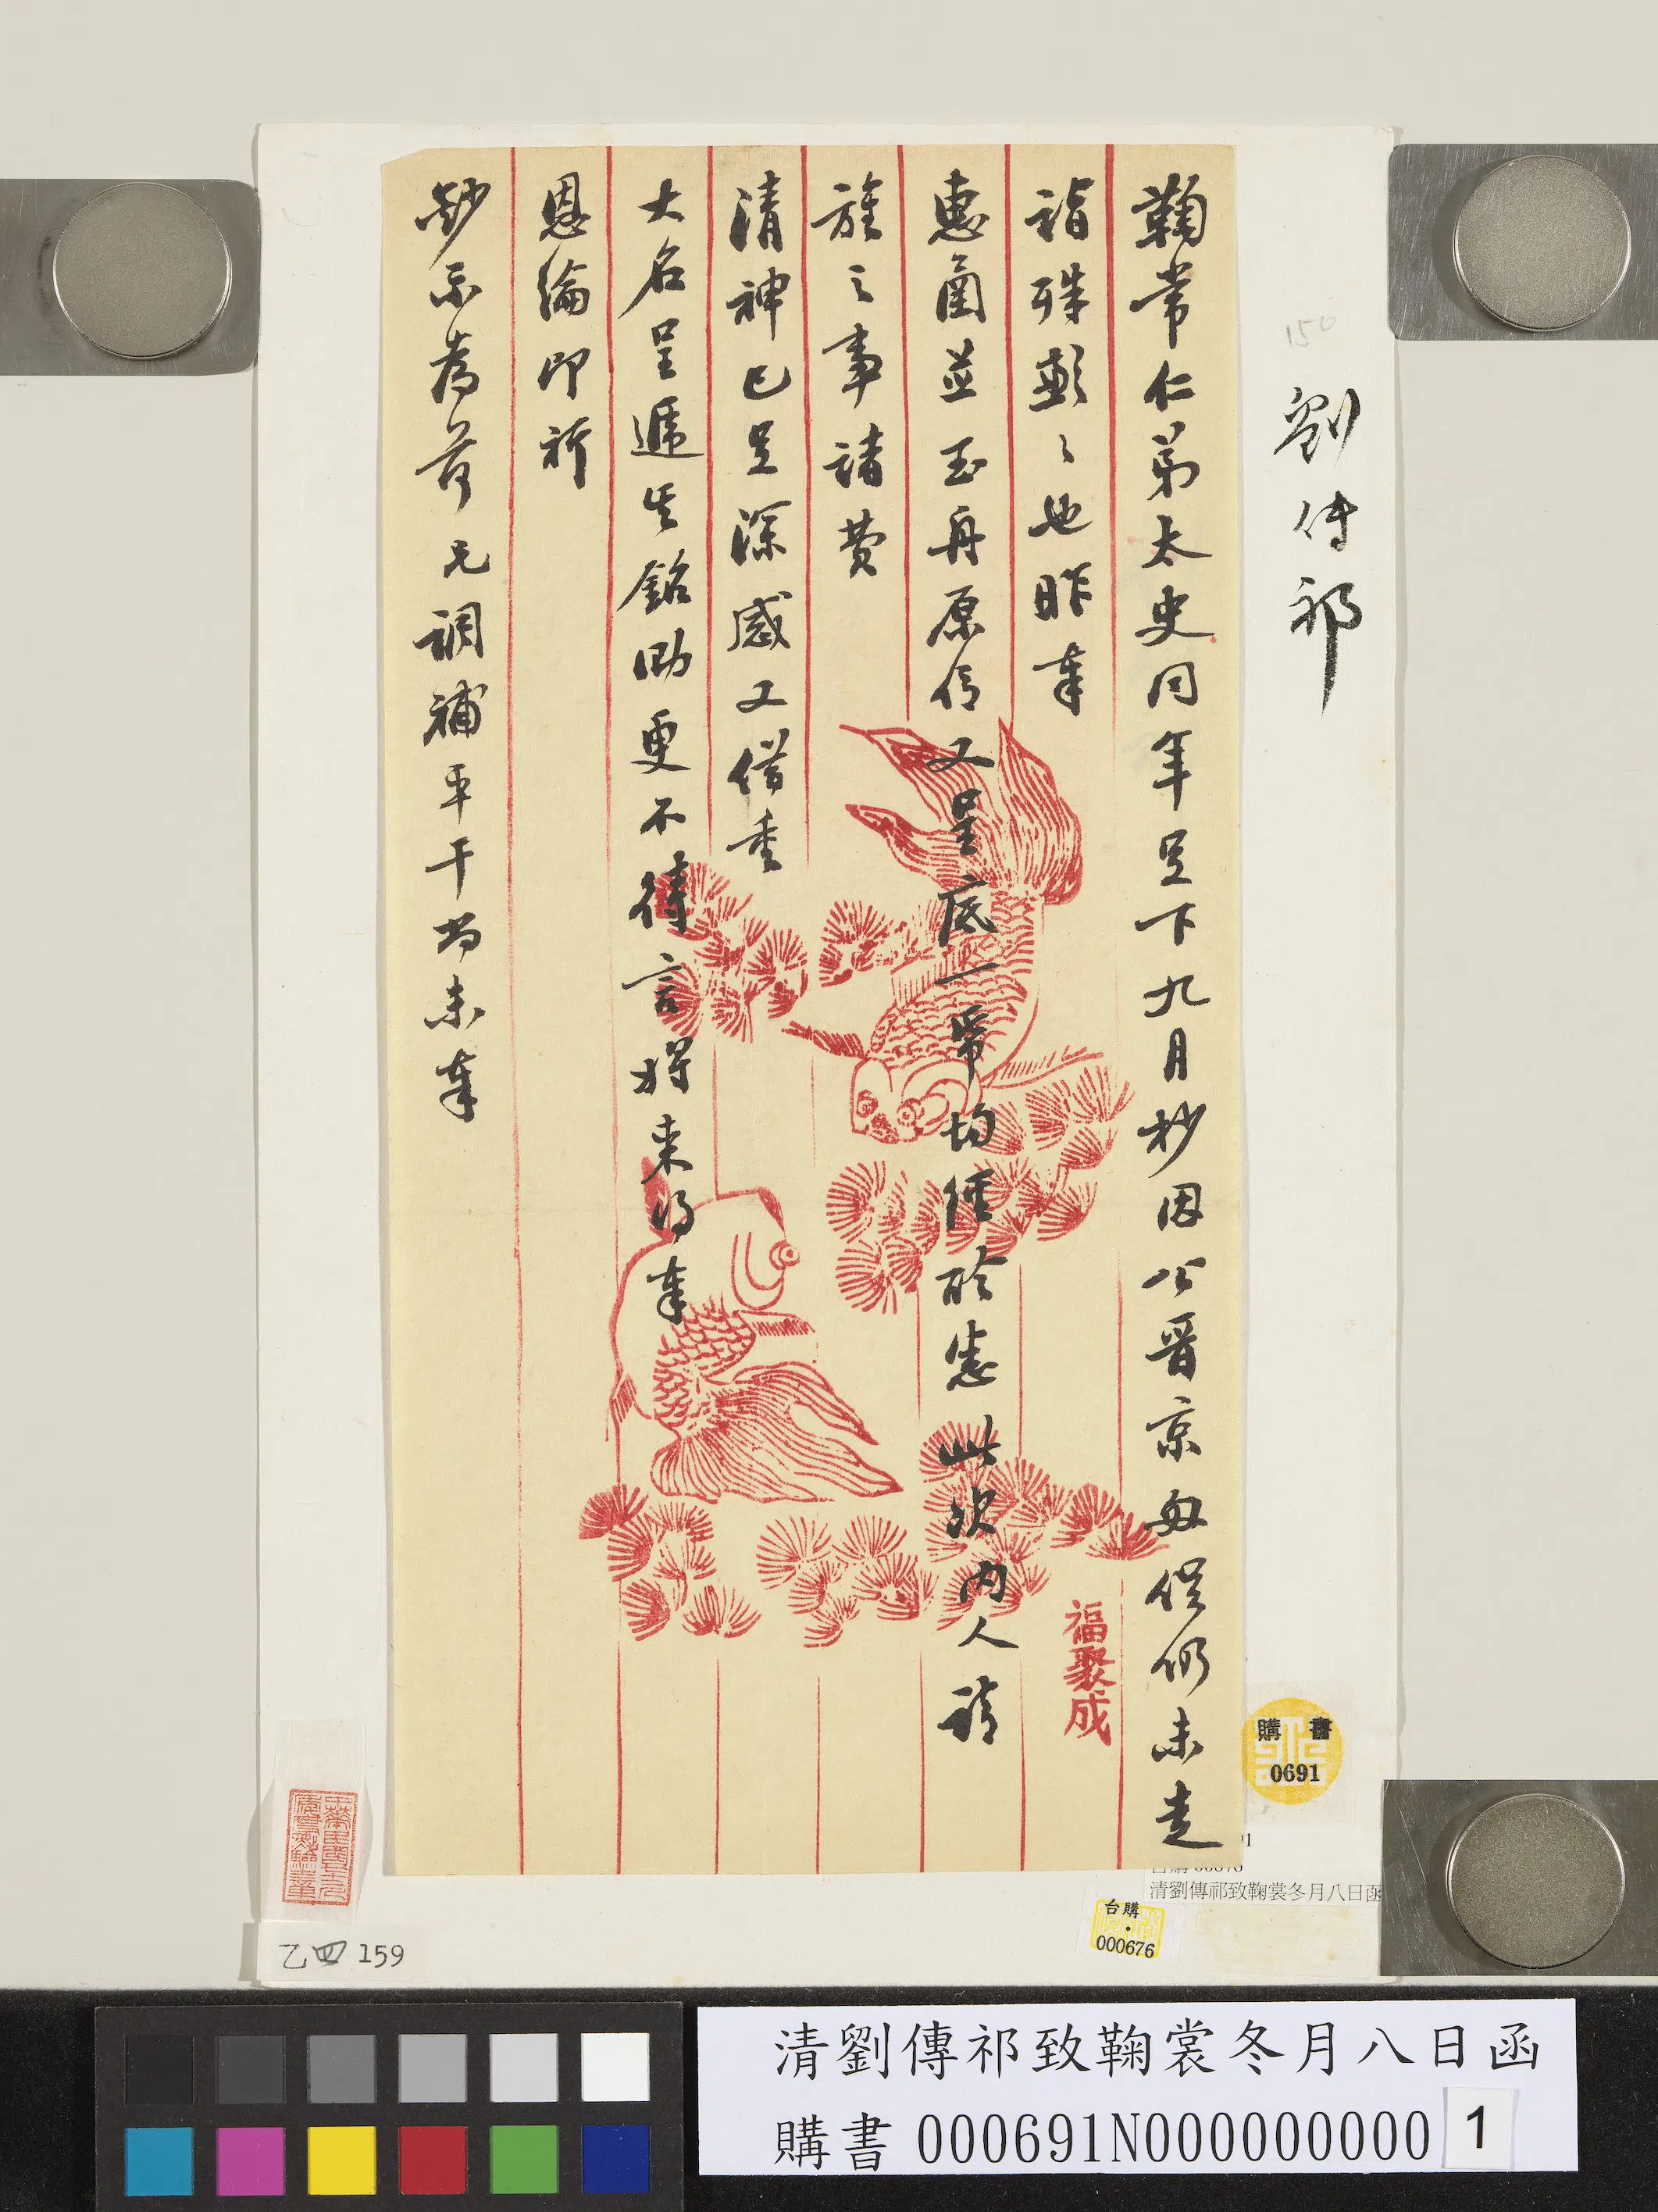 劉傳祁
150
鞠常仁弟太史同年足下九月杪因公晉京匆促仍未走
詣殊歉歉也昨奉
惠圅並玉舟原信又呈底一帋均經聆悉此次內人請
旌之事諸費
清神已足深感又借重
大名呈遞生銘勋更不待言將來得奉
恩綸即祈
鈔示為荷兄調補平干尚未奉
福聚成
購書
0691
台購
000676
清劉傳祁致鞠裳冬月八日函
乙四159
清劉傳祁致鞠裳冬月八日函
購書 000691N000000000 1